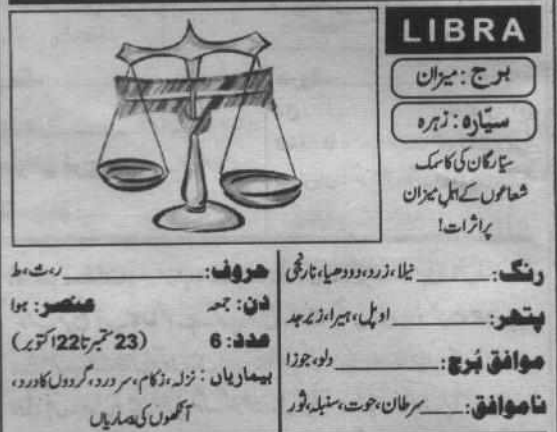 LIBRA
برج: میزان
سیّارہ: زہرہ
سیّارگان کی کاسمک
شعاعوں کے اہلِ میزان
پر اثرات!
رنگ: نیلا، زرد، دودھیا، نارنجی
پتھر: اوپل، ہیرا، زبرجد
موافق بُرج: دلو، جوزا
ناموافق: سرطان، حوت، سنبلہ، ثور
حروف: ر، ت، ط
دن: جمعہ عنصر: ہوا
عدد: 6 (23 ستمبر تا 22 اکتوبر)
بیماریاں: نزلہ، زکام، سر درد، گردوں کا درد،
آنکھوں کی بیماریاں